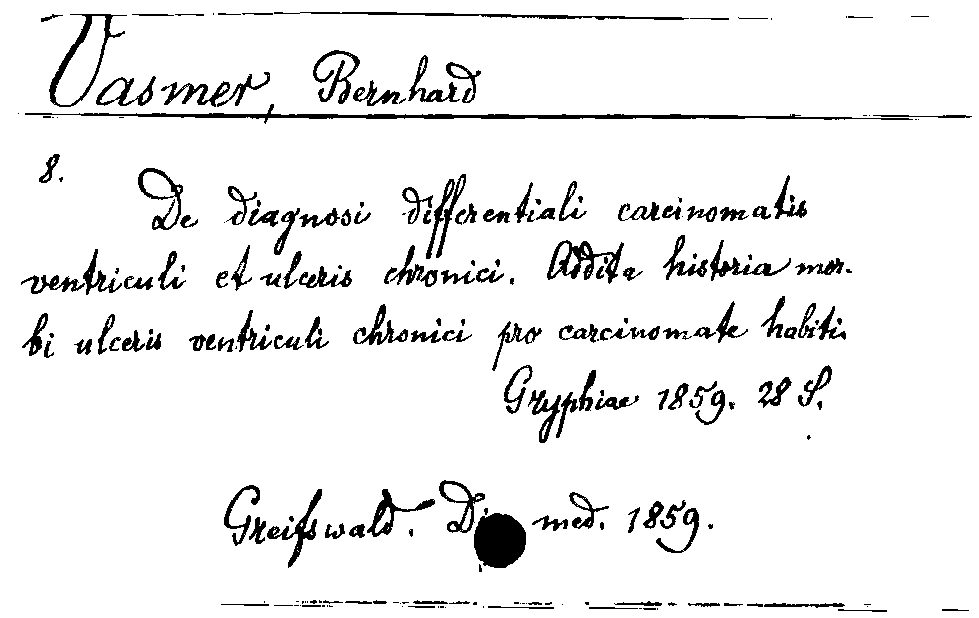 Vasmer, Bernhard
8.
De diagnosi differentiali carcinomatis
ventriculi et ulceris chronici. Addita historia mor-
bi ulceris ventriculi chronici pro carcinomate habiti.
Gryphiae 1859. 28 S.
Greifswald. Di med. 1859.